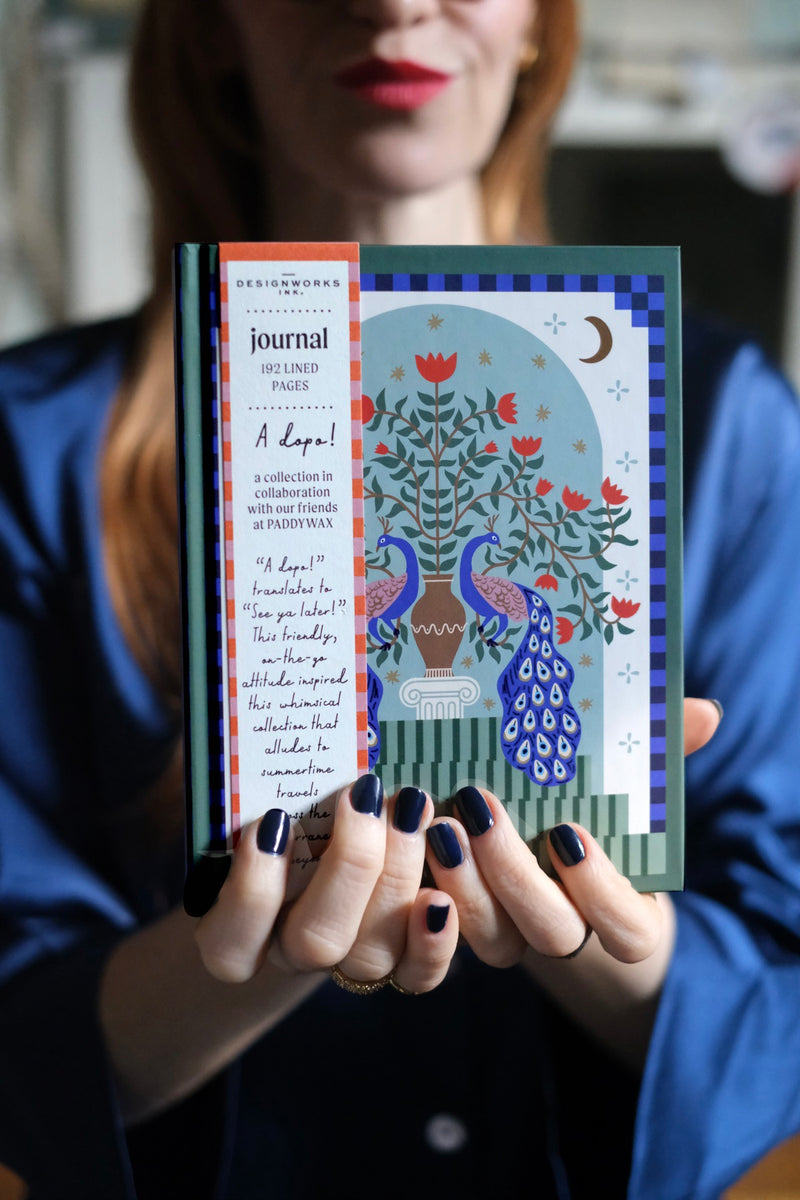 DESIGNWORKS
INK.
journal
192 LINED
PAGES
A dopo!
a collection in
collaboration
with our friends
at PADDYWAX
“A dopo!”
translates to
“See ya later!”
This friendly,
on-the-go
attitude inspired
this whimsical
collection that
alludes to
summertime
travels
the